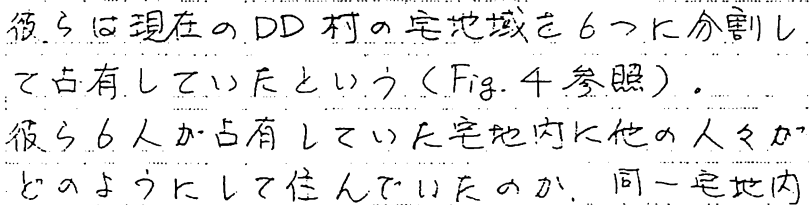 彼らは現在のDD村の宅地域を6つに分割し
て占有していたという(Fig. 4 参照)。
彼ら6人が占有していた宅地内に他の人々が
どのようにして住んでいたのか、同一宅地内